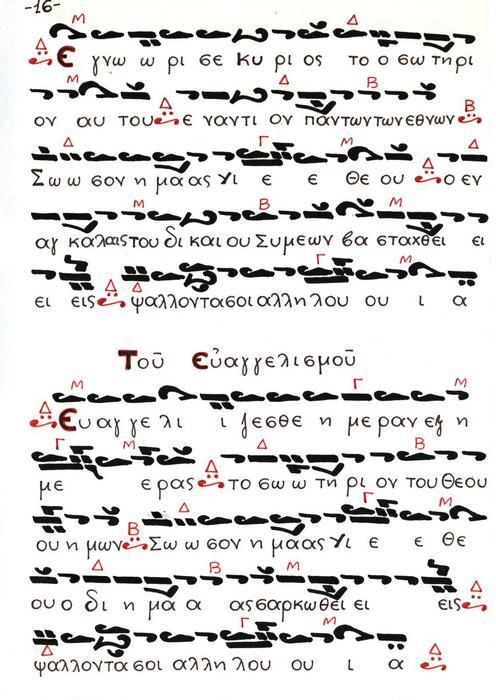 -16-
Ε γνω ω ρι σε κυ ρι ος το ο σω τη ρι
ον αυ του ε ναντι ον παντωντωνεθνων
Σω ω σον η μα ας Υι ε ε Θε ου ο εν
αγ καλαις του δι και ου Συμεων βα σταχθει ει
ει εις ψαλλοντασοι αλλη λου ου ι α
Τοῦ Εὐαγγελισμοῦ
Ευ αγ γε λι ι ζεσθε η με ραν εξ η
με ε ρας το σω ω τη ρι ον του Θεου
ου η μων Σω ω σον η μα ας Υι ε ε Θε
ου ο δι η μα α ας σαρκωθει ει εις
ψαλλοντα σοι αλλη λου ου ι α